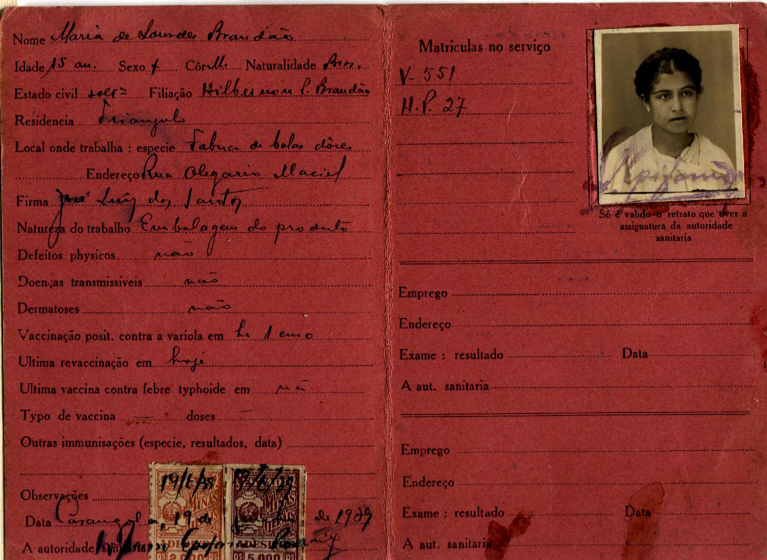 Nome Maria de Lourdes Brandão
Idade 15 an. Sexo f Côr M. Naturalidade Bras.
Estado civil solt= Filiação Hilbernon P. Brandão
Residencia Triangulo
Local onde trabalha : especie Fabrica de balas dôces
Endereço Rua Olegario Maciel
Firma José Luiz dos Santos
Natureza do trabalho Embalagem do producto
Defeitos physicos não
Doenças transmissiveis não
Dermatoses não
Vaccinação posit. contra a variola em ha 1 anno
Ultima revaccinação em hoje
Ultima vaccina contra febre typhoide em não
Typo de vaccina — doses —
Outras immunisações (especie, resultados, data)
Observações
19/6/39 19/6/39
Data Carangola, 19 de de 1939
A autoridade
2.000 5.000
Matriculas no serviço
V-551
H.P. 27
Só é valido o retrato que tiver a
assignatura da autoridade
sanitaria
Emprego
Endereço
Exame : resultado Data
A aut. sanitaria
Emprego
Endereço
Exame : resultado Data
A aut. sanitaria